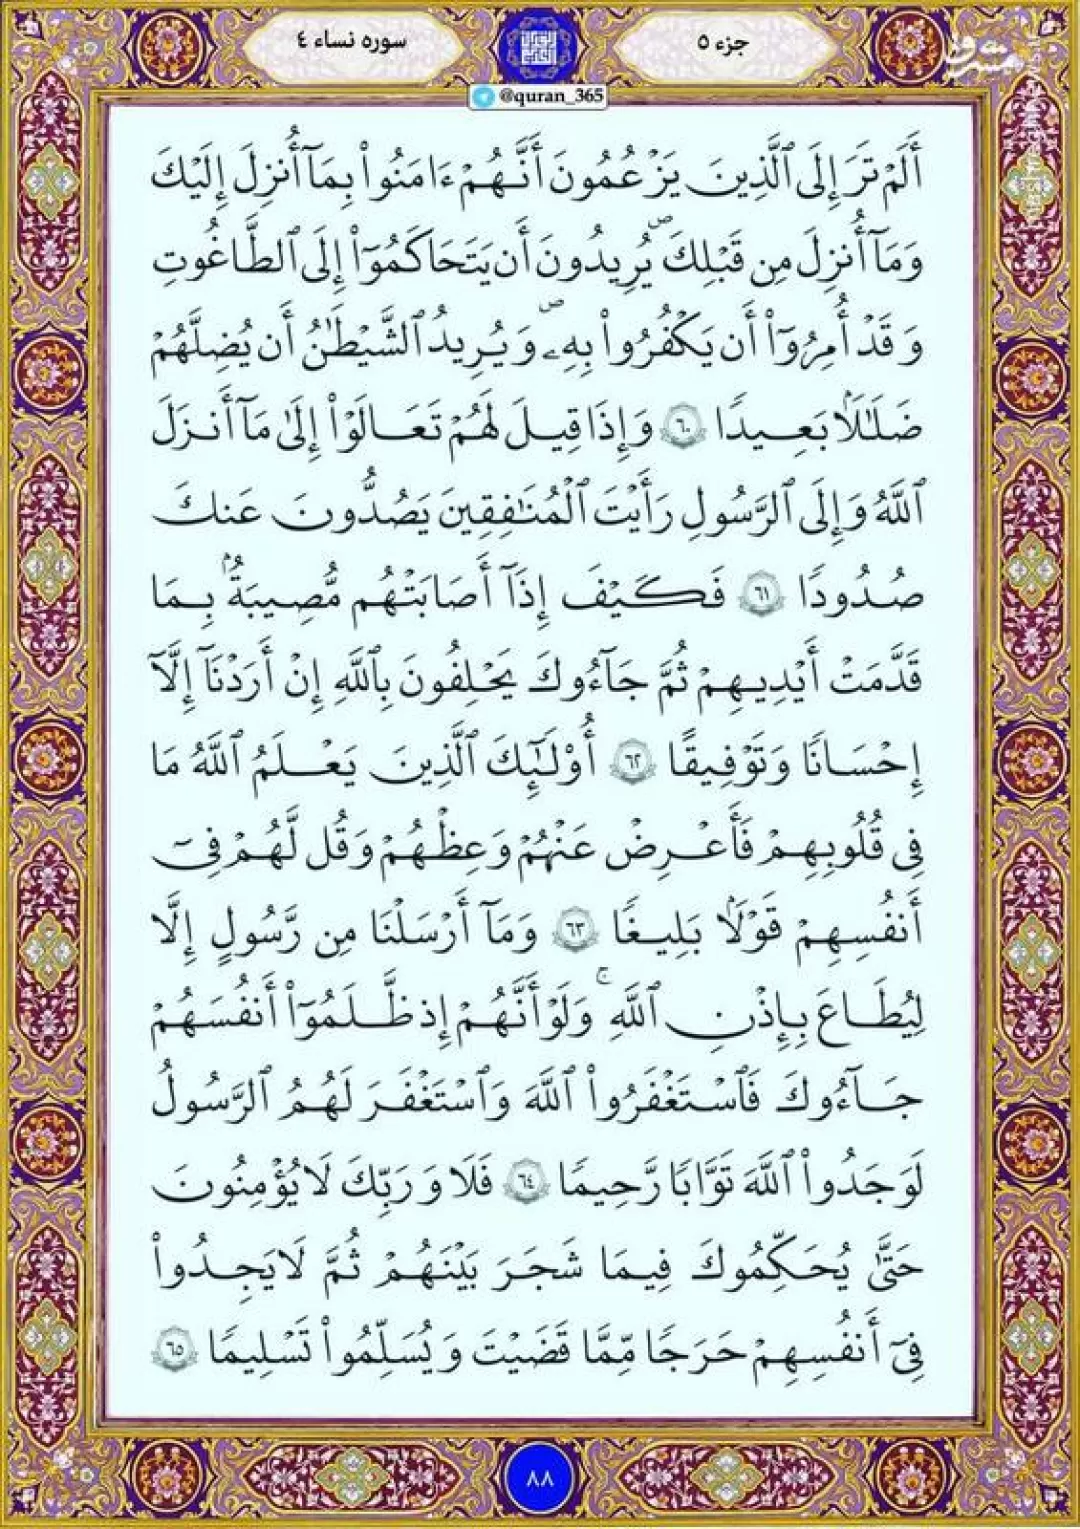 جزء ٥
سوره نساء ٤
@quran_365
أَلَمْ تَرَ إِلَى ٱلَّذِينَ يَزْعُمُونَ أَنَّهُمْ ءَامَنُوا۟ بِمَآ أُنزِلَ إِلَيْكَ
وَمَآ أُنزِلَ مِن قَبْلِكَ ۖ يُرِيدُونَ أَن يَتَحَاكَمُوٓا۟ إِلَى ٱلطَّٰغُوتِ
وَقَدْ أُمِرُوٓا۟ أَن يَكْفُرُوا۟ بِهِۦ ۖ وَيُرِيدُ ٱلشَّيْطَٰنُ أَن يُضِلَّهُمْ
ضَلَٰلًۢا بَعِيدًا ٦٠ وَإِذَا قِيلَ لَهُمْ تَعَالَوْا۟ إِلَىٰ مَآ أَنزَلَ
ٱللَّهُ وَإِلَى ٱلرَّسُولِ رَأَيْتَ ٱلْمُنَٰفِقِينَ يَصُدُّونَ عَنكَ
صُدُودًا ٦١ فَكَيْفَ إِذَآ أَصَٰبَتْهُم مُّصِيبَةٌۢ بِمَا
قَدَّمَتْ أَيْدِيهِمْ ثُمَّ جَآءُوكَ يَحْلِفُونَ بِٱللَّهِ إِنْ أَرَدْنَآ إِلَّآ
إِحْسَٰنًا وَتَوْفِيقًا ٦٢ أُو۟لَٰٓئِكَ ٱلَّذِينَ يَعْلَمُ ٱللَّهُ مَا
فِى قُلُوبِهِمْ فَأَعْرِضْ عَنْهُمْ وَعِظْهُمْ وَقُل لَّهُمْ فِىٓ
أَنفُسِهِمْ قَوْلًۢا بَلِيغًا ٦٣ وَمَآ أَرْسَلْنَا مِن رَّسُولٍ إِلَّا
لِيُطَاعَ بِإِذْنِ ٱللَّهِ ۚ وَلَوْ أَنَّهُمْ إِذ ظَّلَمُوٓا۟ أَنفُسَهُمْ
جَآءُوكَ فَٱسْتَغْفَرُوا۟ ٱللَّهَ وَٱسْتَغْفَرَ لَهُمُ ٱلرَّسُولُ
لَوَجَدُوا۟ ٱللَّهَ تَوَّابًا رَّحِيمًا ٦٤ فَلَا وَرَبِّكَ لَا يُؤْمِنُونَ
حَتَّىٰ يُحَكِّمُوكَ فِيمَا شَجَرَ بَيْنَهُمْ ثُمَّ لَا يَجِدُوا۟
فِىٓ أَنفُسِهِمْ حَرَجًا مِّمَّا قَضَيْتَ وَيُسَلِّمُوا۟ تَسْلِيمًا ٦٥
٨٨